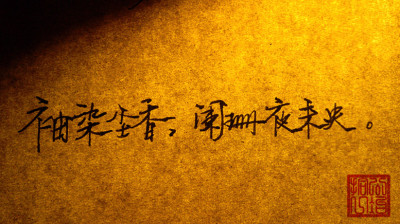 袖染尘香，阑珊夜未央。